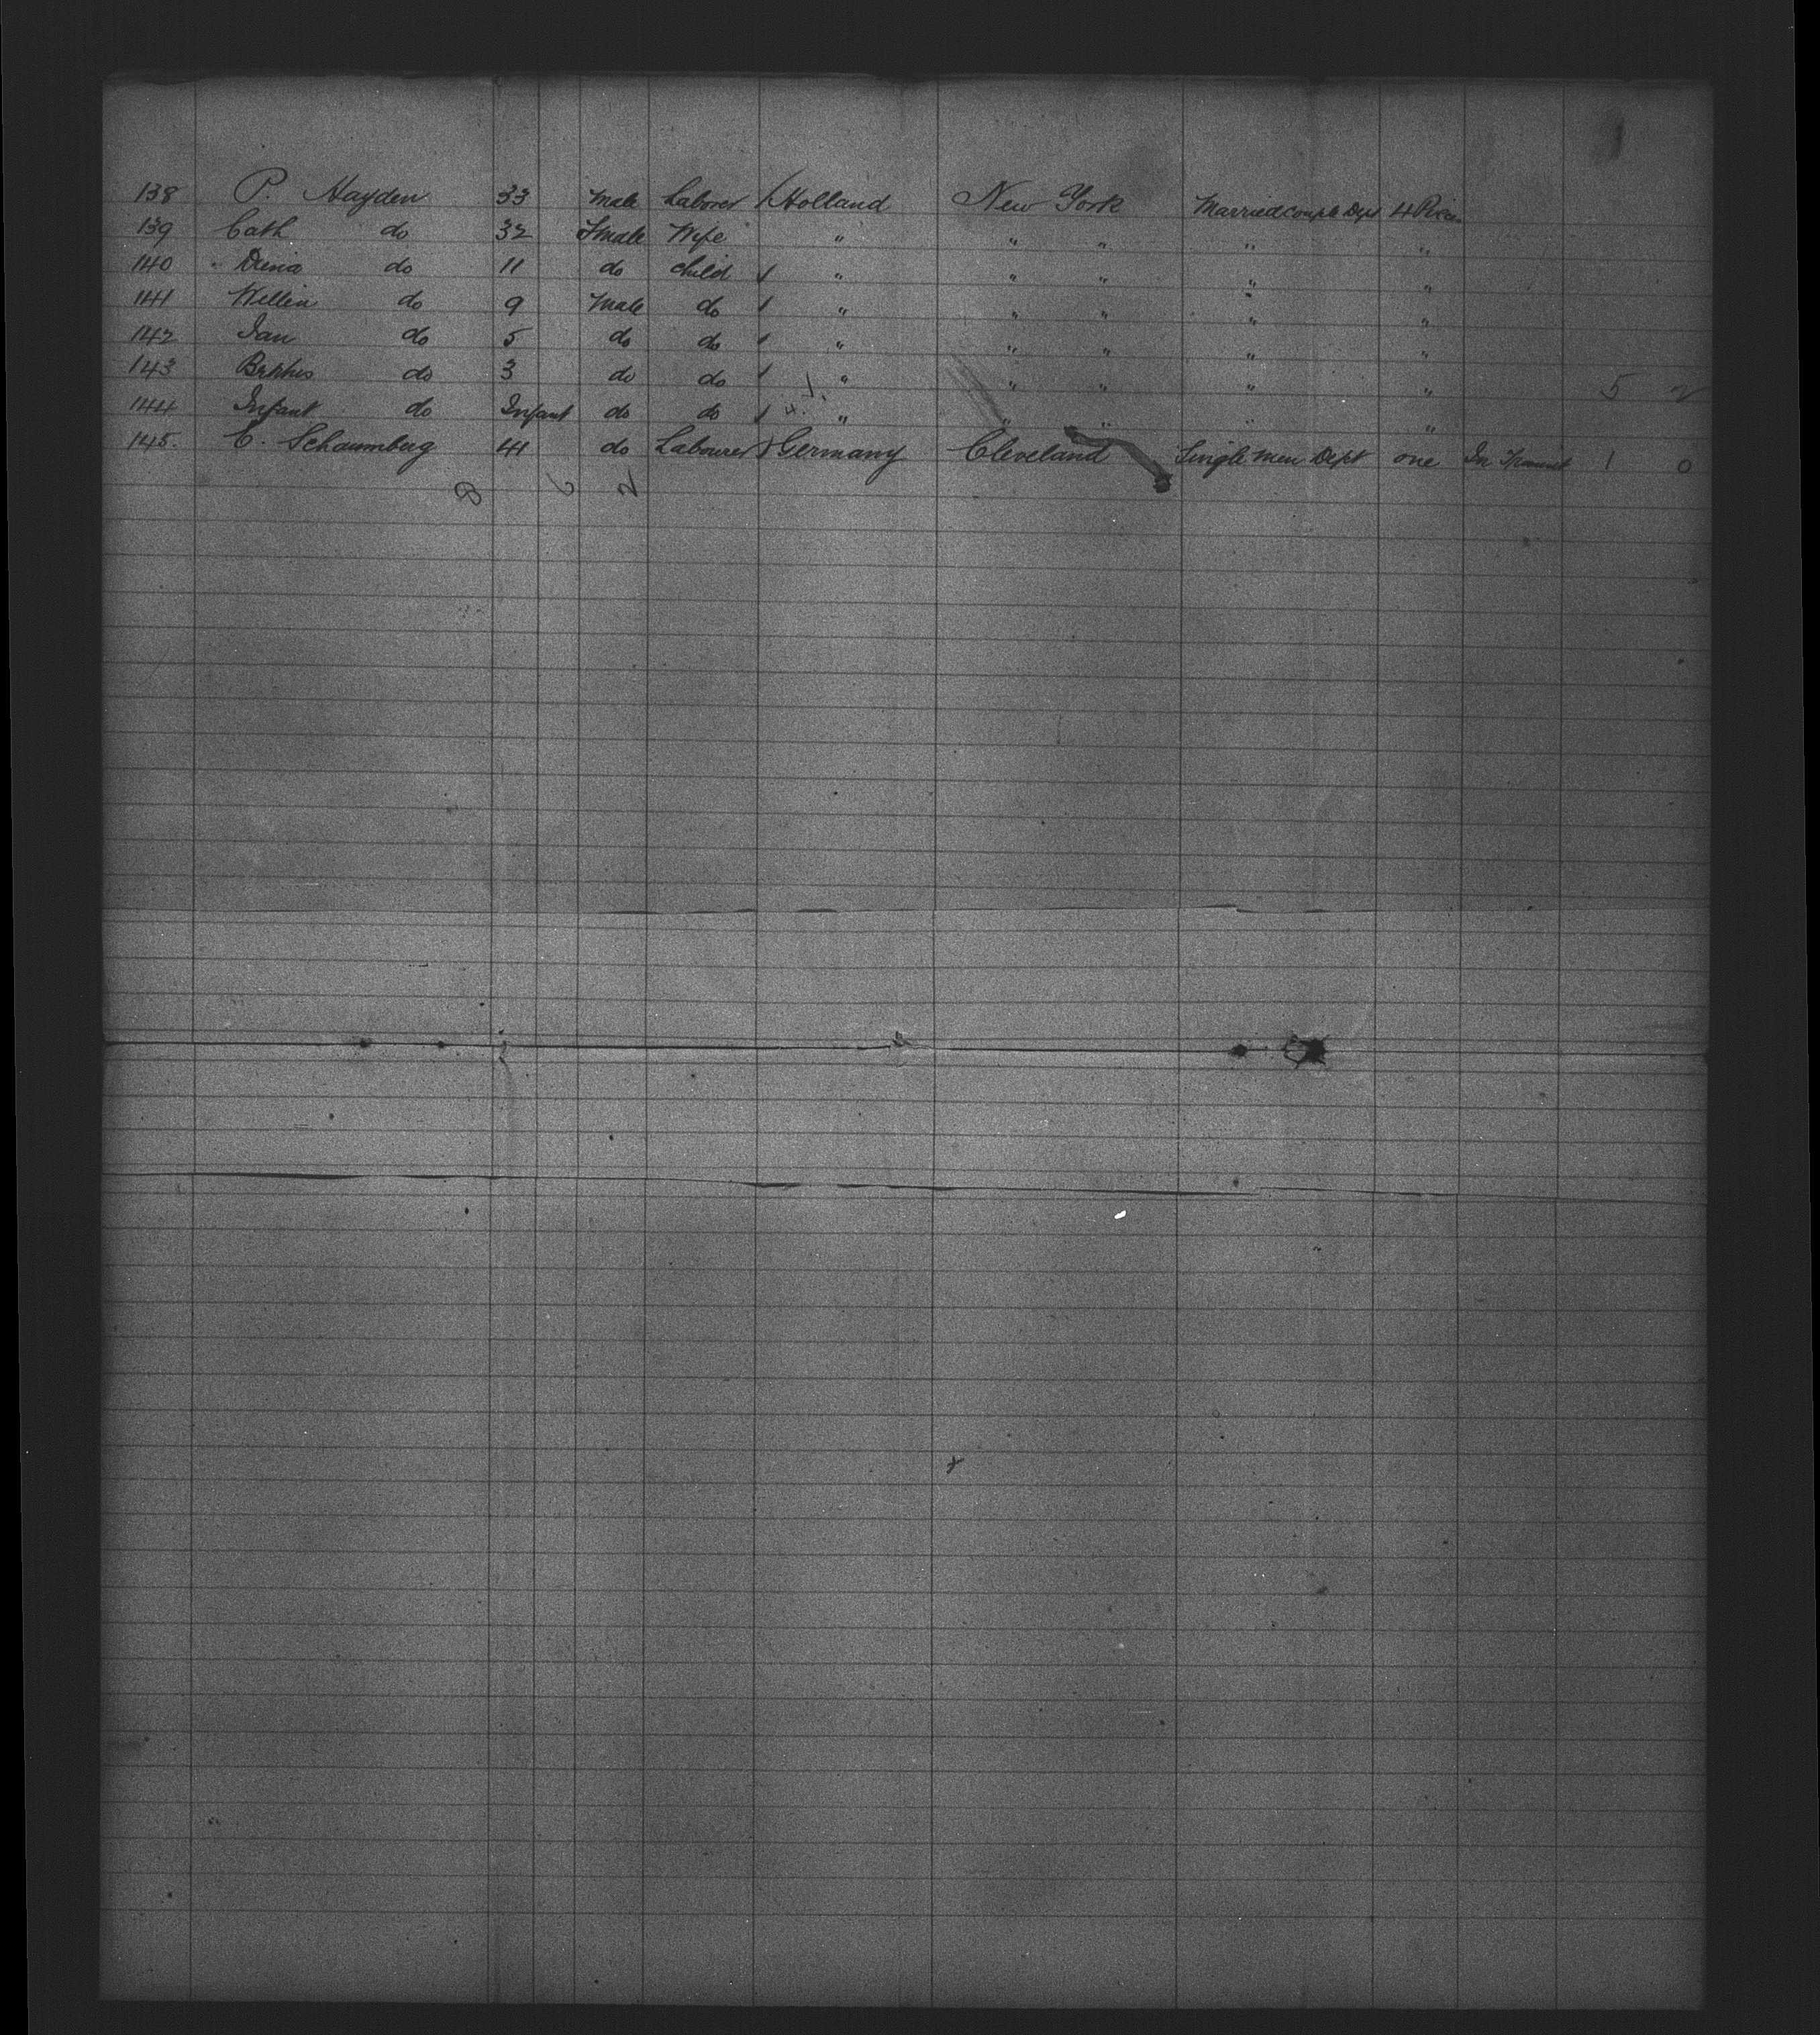 138 P. Hayden 33 Male Laborer Holland New York Married couple Dept 4 Pieces
139 Cath do 32 Fmale Wife " " " " "
140 Dina do 11 do child " " " " "
141 Willem do 9 Male do " " " " "
142 Jan do 5 do do " " " " "
143 do 3 do do " " " " " 5 2
144 Infant do Infant do do " " " " "
145. C. Schaumberg 41 do Labourer Germany Cleveland Single men Dept one In Transit 1 0